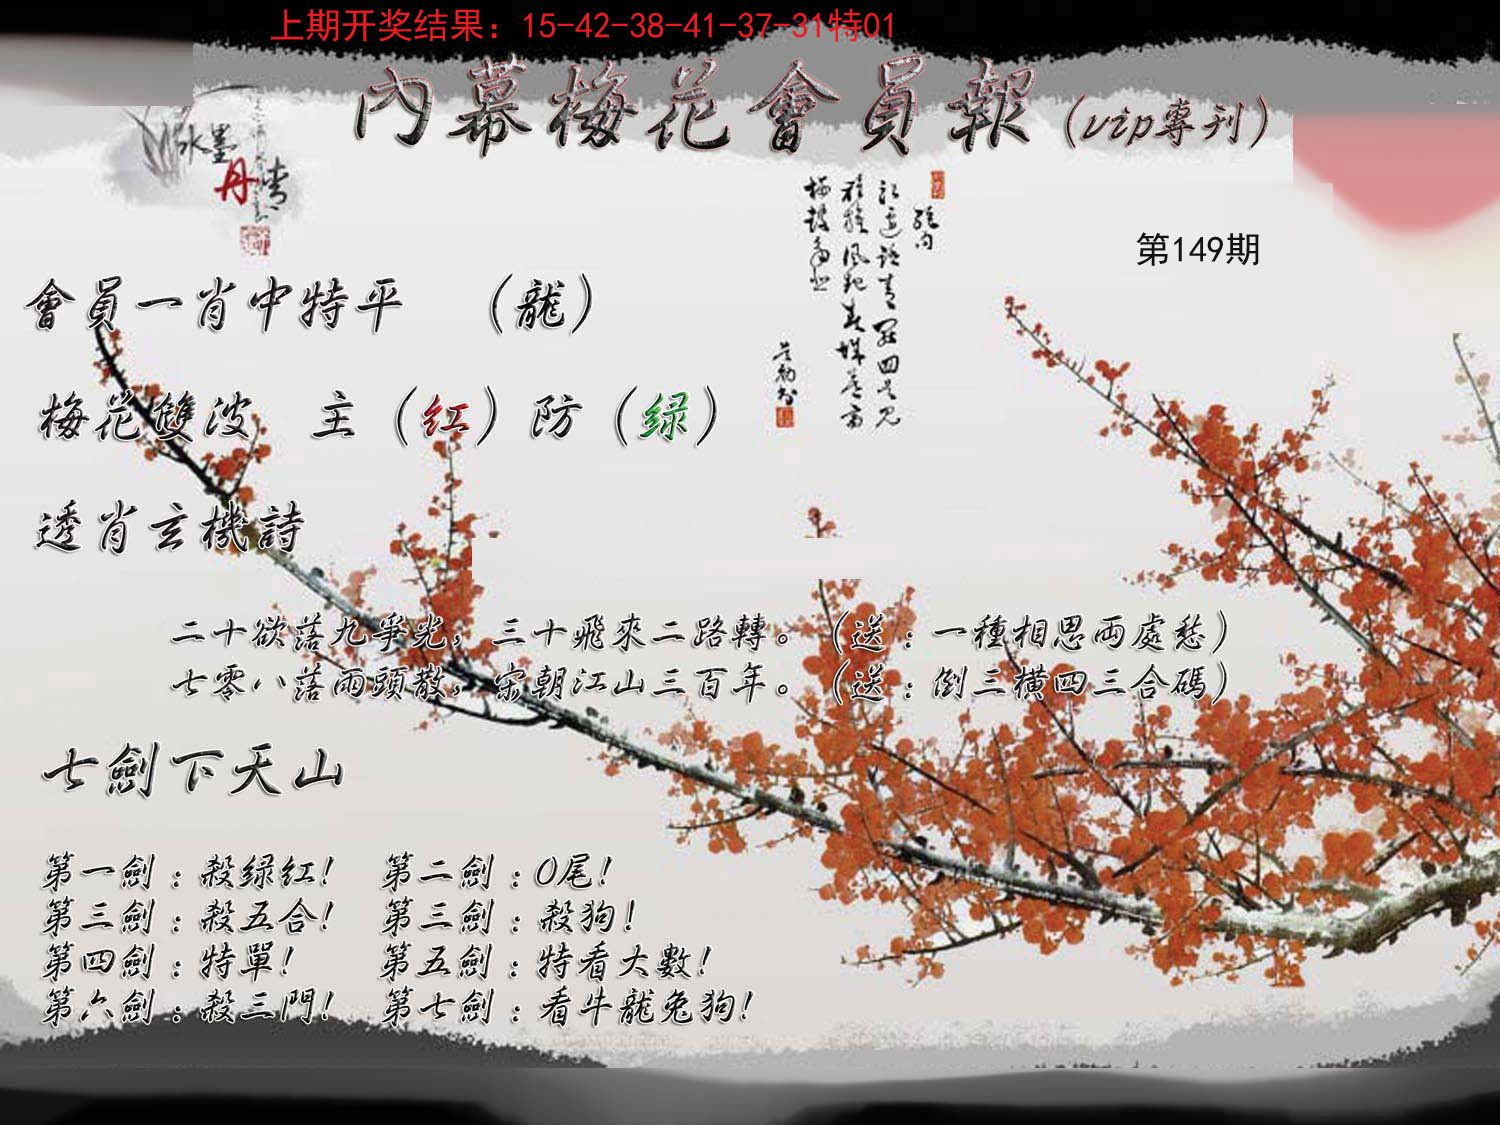 上期开奖结果：15-42-38-41-37-31特01
內幕梅花會員報（vip專刊）
水墨
丹情
第149期
會員一肖中特平 （龍）
梅花雙波 主（红）防（绿）
透肖玄機詩
二十欲落九爭光，三十飛來二路轉。（送：一種相思兩處愁）
七零八落兩頭散，宋朝江山三百年。（送：倒三橫四三合碼）
七劍下天山
第一劍：殺绿红! 第二劍：0尾!
第三劍：殺五合! 第三劍：殺狗!
第四劍：特單! 第五劍：特看大數!
第六劍：殺三門! 第七劍：看牛龍兔狗!